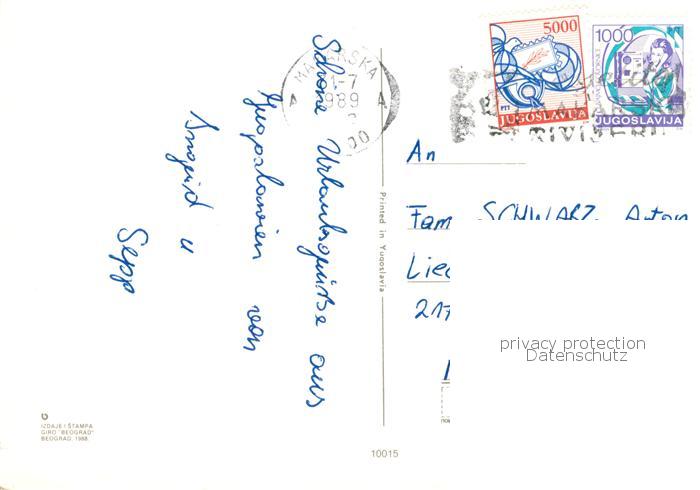 Schöne Urlaubsgrüße aus
Jugoslawien von
Ingrid u
Sepp
MAKARSKA
1-7
1989
An
Fam SCHWARZ Anton
Lie
217
5000
PTT
JUGOSLAVIJA
1000
JUGOSLAVIJA
Printed in Yugoslavia
privacy protection
Datenschutz
IZDAJE I ŠTAMPA
GIRO "BEOGRAD"
BEOGRAD, 1988.
10015